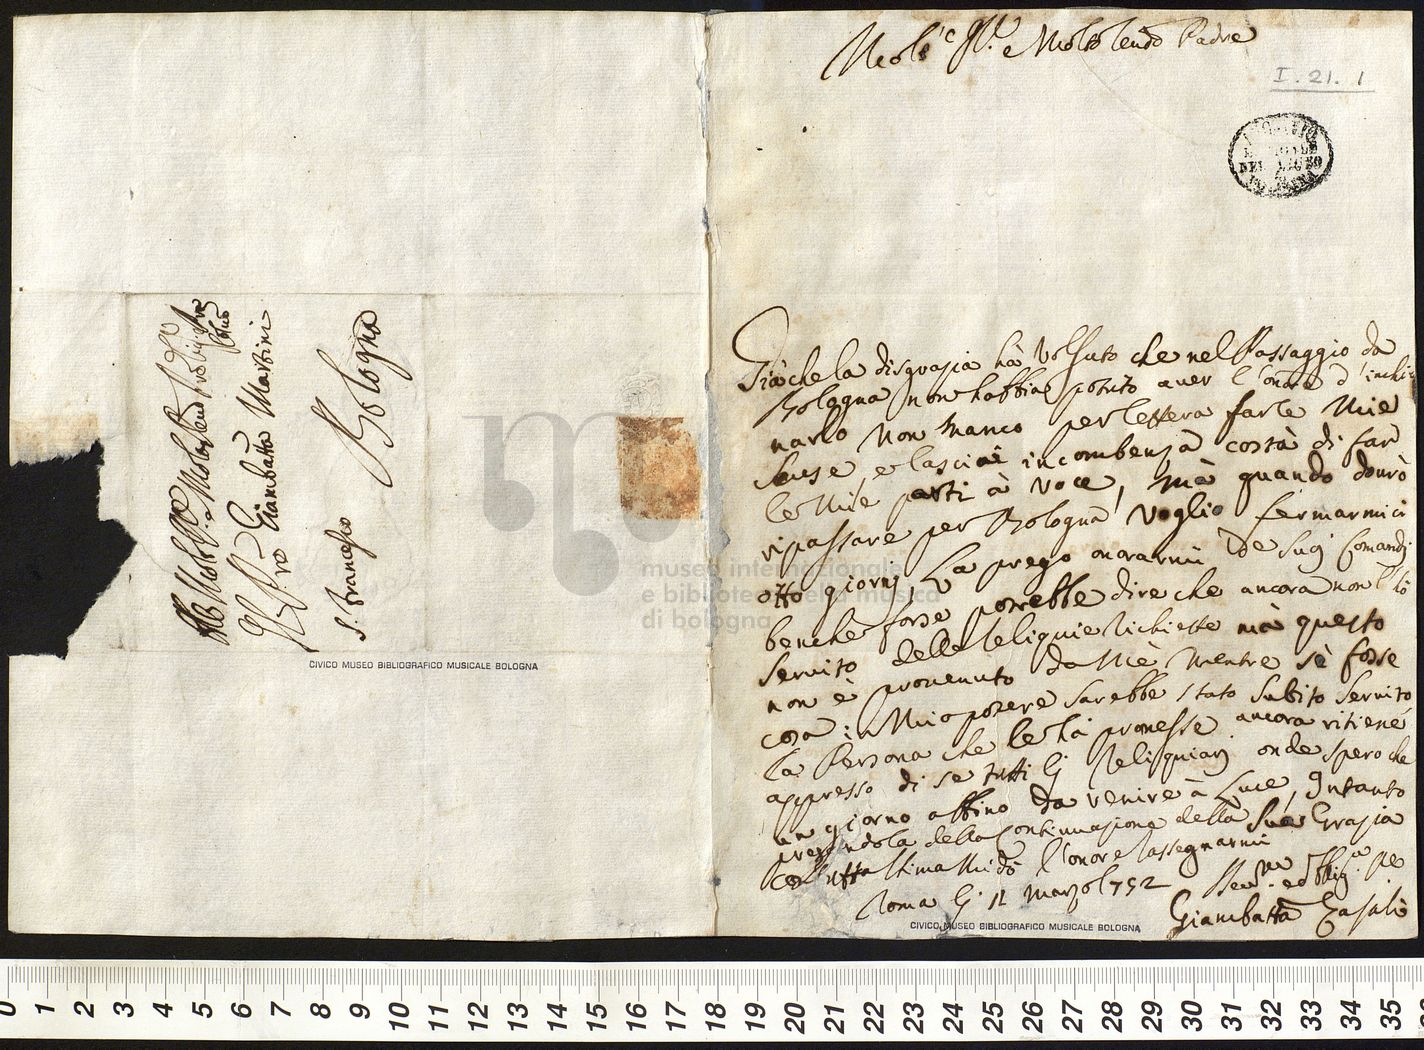 e Molto Revdo Padre
I. 21. 1
Già che la disgrazia hà volsuto che nel Passaggio da
Bologna non habbia potuto aver l'onore d'inchi
narlo non manco per lettera farle Mie
Scuse, e lasciai incombenza costà di far
le mie parti à voce, mà quando dourò
ripassare per Bologna voglio fermarmici
otto giorni, La prego onorarmi de suoj Comandi
benche forse potrebbe dire che ancora non l'hò
seruito delle Reliquie richieste mà questo
non è prouenuto da Mè mentre sè fosse
cosa in Mio potere sarebbe stato subito seruito
la Persona che le hà promesse ancora ritiene
appresso di se tutti li Reliquiarj onde spero che
un giorno abbino da venire à Luce, Intanto
pregandola della Continuazione della Sua Grazia
l'onore rassegnarmi
Roma li 12 Marzo 1752
Giambatta Casali
Molto Revdo
Giambatta Martini
S. Francesco
Bologna
museo internazionale
e biblioteca della musica
di bologna
CIVICO MUSEO BIBLIOGRAFICO MUSICALE BOLOGNA
CIVICO MUSEO BIBLIOGRAFICO MUSICALE BOLOGNA
0 1 2 3 4 5 6 7 8 9 10 11 12 13 14 15 16 17 18 19 20 21 22 23 24 25 26 27 28 29 30 31 32 33 34 35